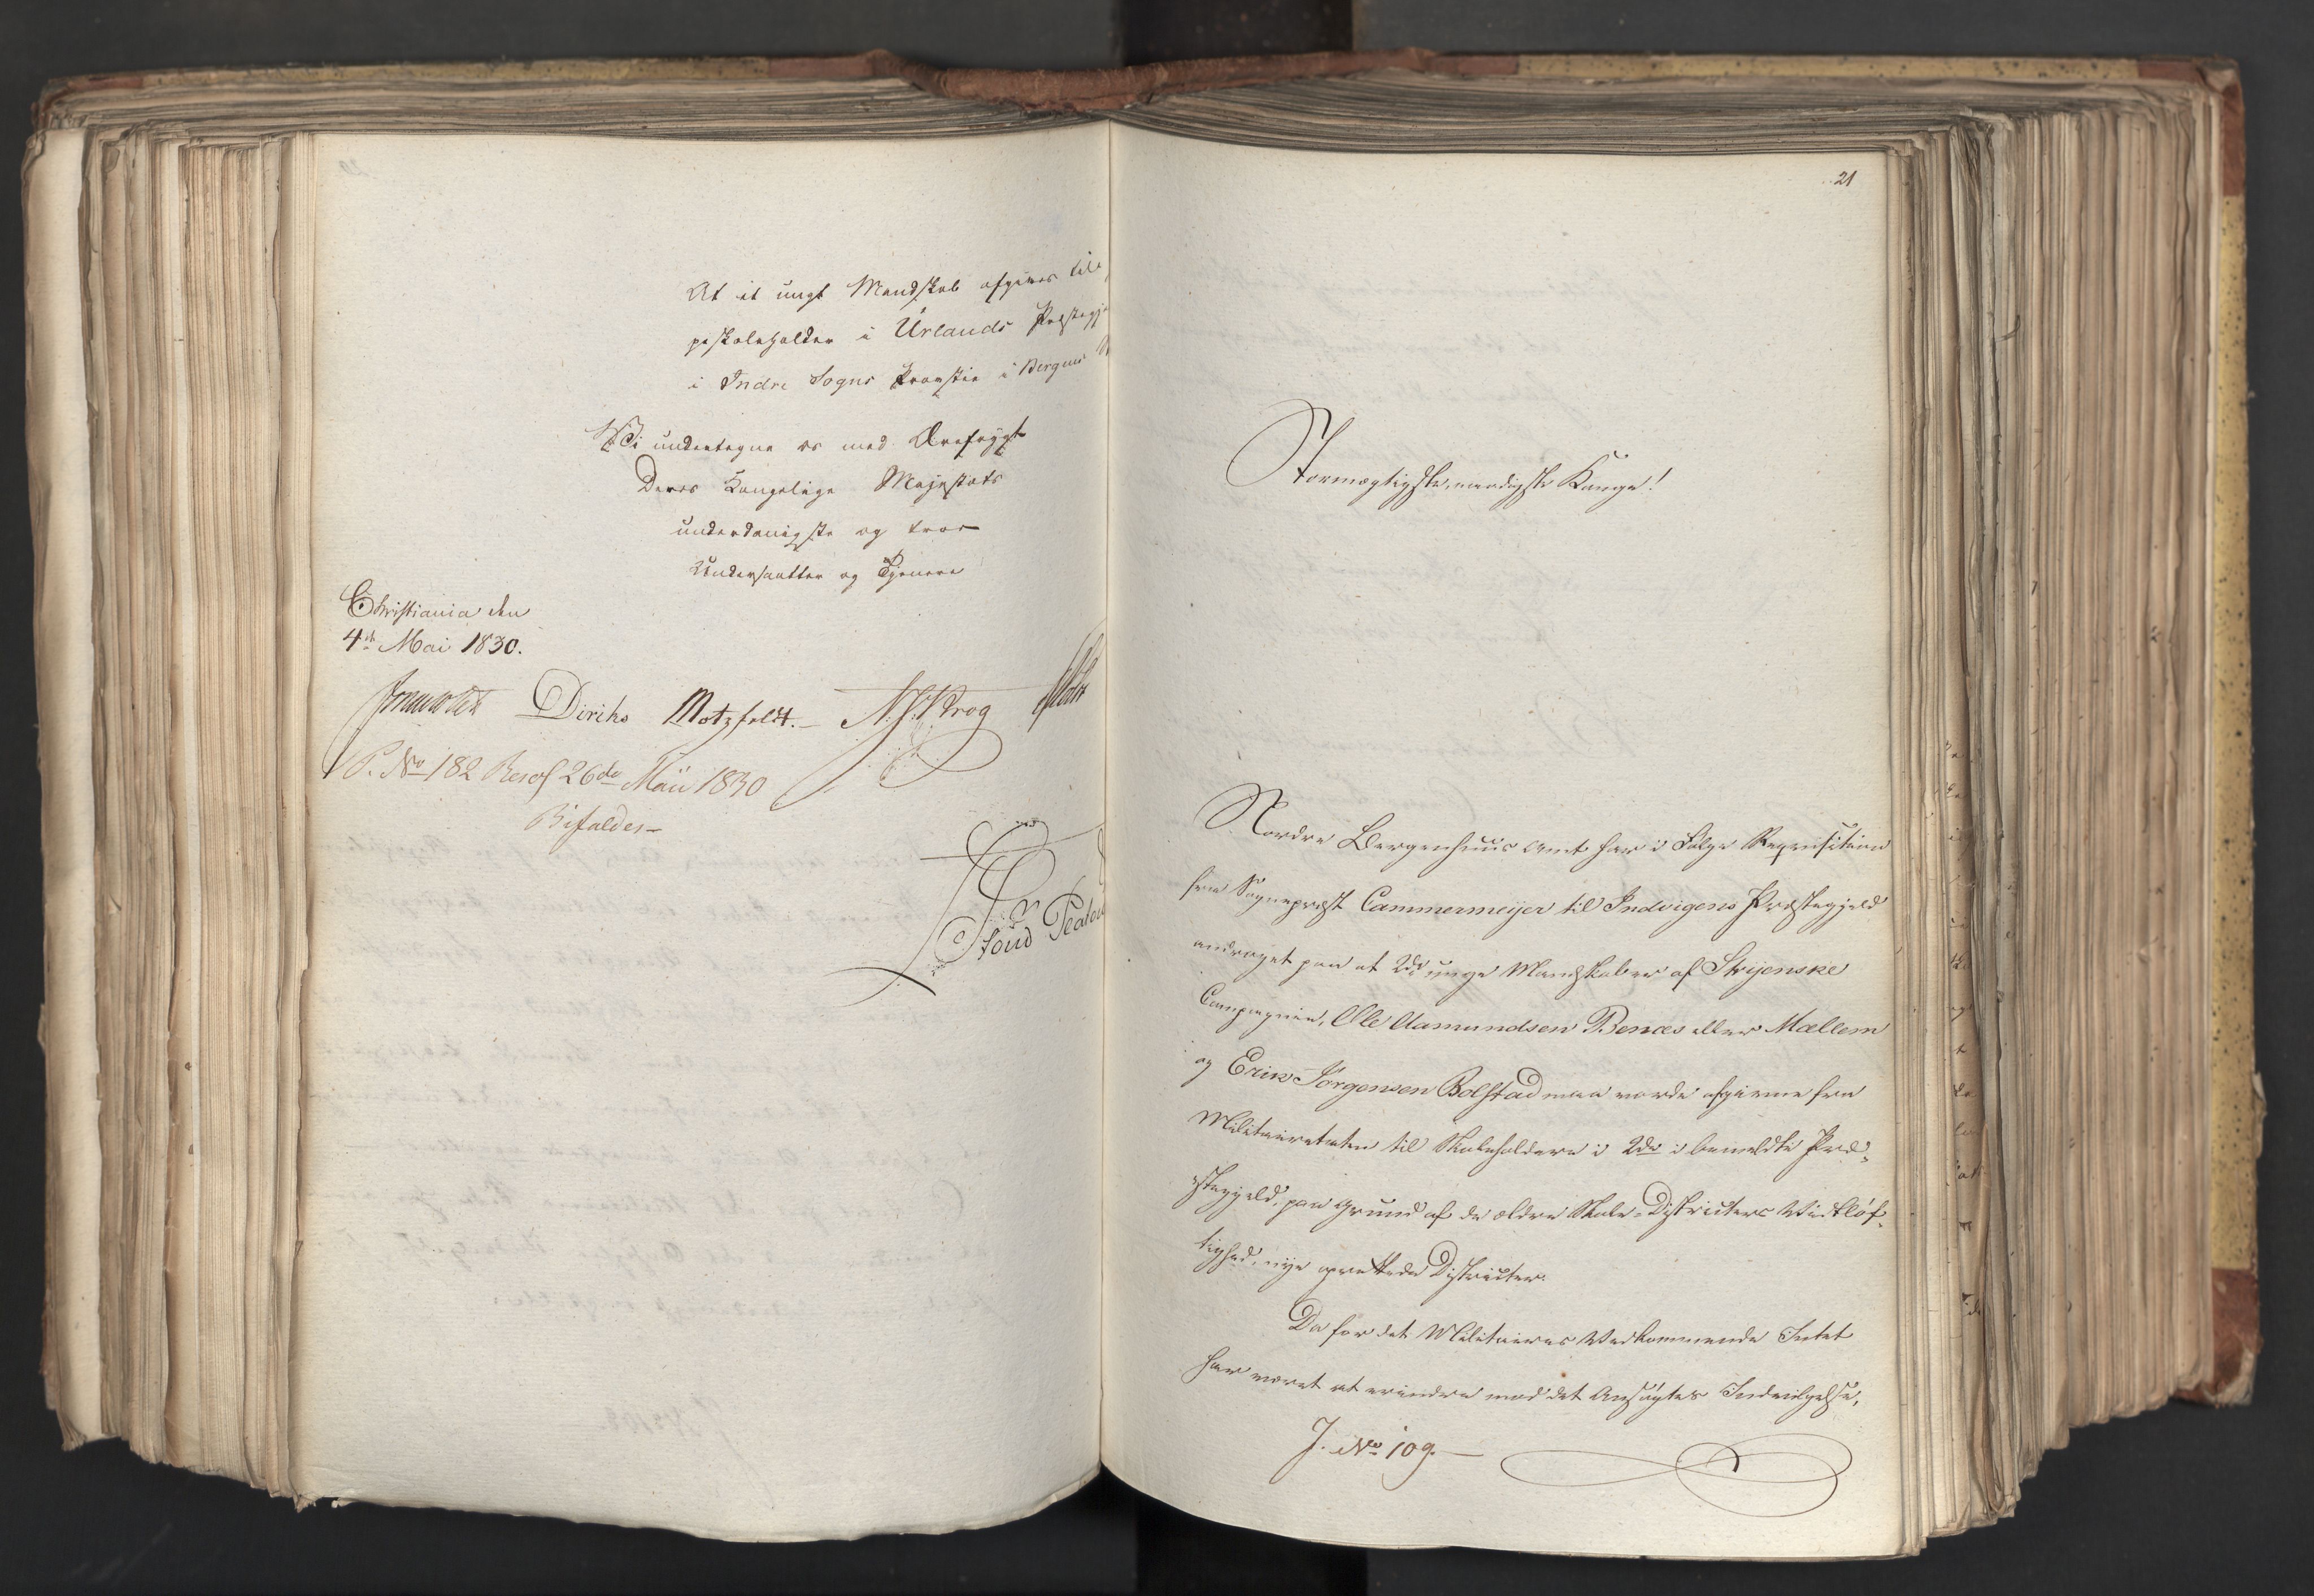 At et ungt Mandskab afgives til
i Urlands Præstegj
i Indre Sogns Provstie i Bergens
Vi undertegne os med Ærefrygt
Deres Kongelige Majestæts
underdanigste og troe
Undersaatter og Tjenere
Christiania den
4de Mai 1830.
Diriks Motzfeldt. N. J. Krog
P. No 182 Resol 26de Maii 1830
Bifaldes
Due
21
Stormægtigste, naadigste Konge!
Nordre Bergenhuus Amt har i Følge Reqvisition
fra Sognepræst Cammermeijer til Indvigens Præstegjeld
andraget paa at 2de unge Mandskaber af Stryenske
Compagnie, Ole Aamundsen Benæs eller Mællem
og Erik Jørgensen Bolstad maa vorde afgivne fra
Militairetaten til Skoleholdere i 2de i bemeldte Præ-
stegjeld, paa Grund af de ældre Skole-Districters Vidtløf-
tighed, nye oprettede Districter.
Da for det Militaires Vedkommende Intet
har været at erindre mod det Ansøgtes Indvilgelse,
J. No 109.